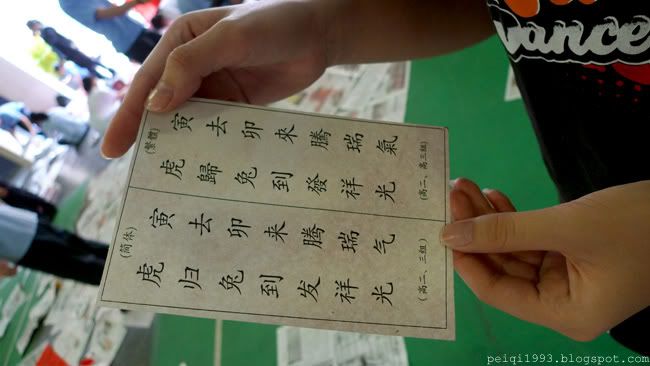 (繁體)
寅去卯來騰瑞氣
虎歸兔到發祥光
(高二、高三組)
(简体)
寅去卯来腾瑞气
虎归兔到发祥光
(高二、三组)
vance
peiqi1993.blogspot.com